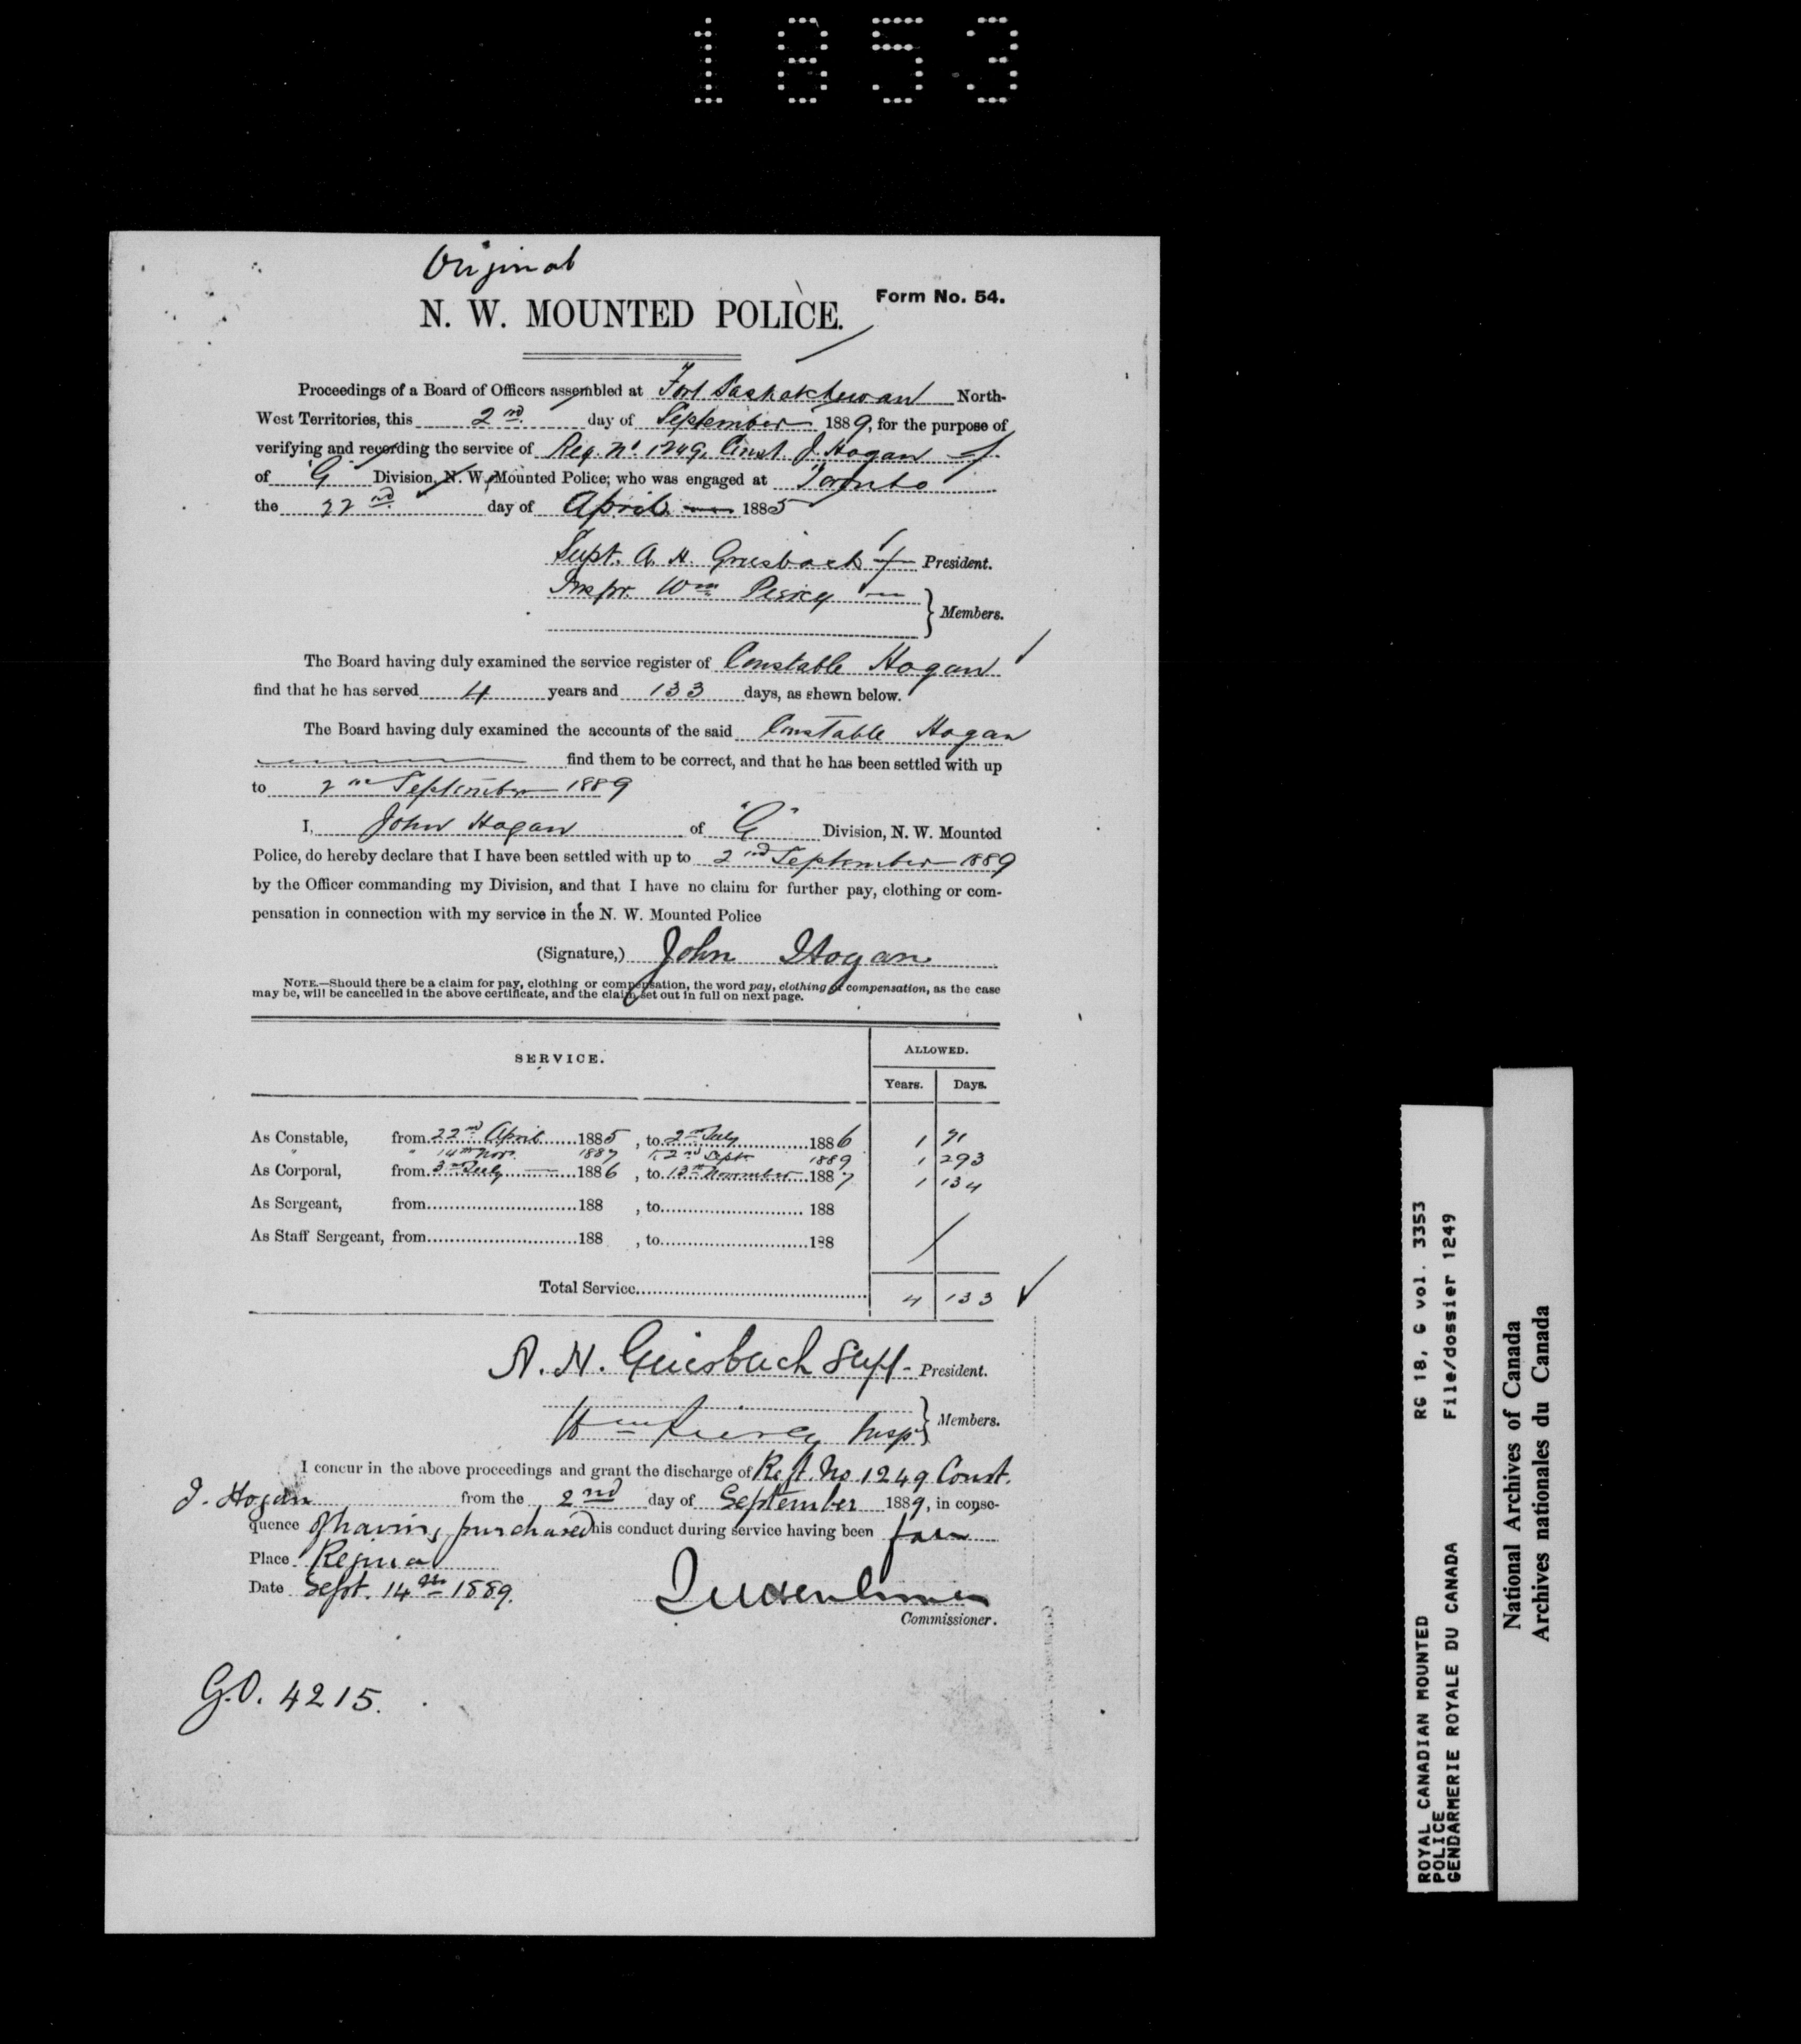 1853
Original
N. W. MOUNTED POLICE.
Form No. 54.
Proceedings of a Board of Officers assembled at Fort Saskatchewan North-
West Territories, this 2nd day of September 1889, for the purpose of
verifying and recording the service of Reg. No. 1249, Const. J. Hogan
of "G" Division, N. W. Mounted Police; who was engaged at Toronto
the 22nd day of April 1885
Supt. A. H. Griesbach President.
Inspr. Wm Piercy
Members.
The Board having duly examined the service register of Constable Hogan
find that he has served 4 years and 133 days, as shewn below.
The Board having duly examined the accounts of the said Constable Hogan
find them to be correct, and that he has been settled with up
to 2nd September 1889
I, John Hogan of "G" Division, N. W. Mounted
Police, do hereby declare that I have been settled with up to 2nd September 1889
by the Officer commanding my Division, and that I have no claim for further pay, clothing or com-
pensation in connection with my service in the N. W. Mounted Police
(Signature,) John Hogan
NOTE.—Should there be a claim for pay, clothing or compensation, the word pay, clothing or compensation, as the case
may be, will be cancelled in the above certificate, and the claim set out in full on next page.
SERVICE.
ALLOWED.
Years. Days.
As Constable, from 22nd April 1885, to 2nd July 1886 1 71
" 14th Nov. 1887 to 2nd Sept 1889 1 293
As Corporal, from 3rd July 1886, to 13th November 1887 1 134
As Sergeant, from 188 , to 188
As Staff Sergeant, from 188 , to 188
Total Service 4 133
A. H. Griesbach Supt. President.
Wm Piercy Insp
Members.
I concur in the above proceedings and grant the discharge of Regt. No 1249 Const.
J. Hogan from the 2nd day of September 1889, in conse-
quence of having purchased his conduct during service having been fair
Place Regina
Date Sept. 14th 1889.
Commissioner.
G.O. 4215.
ROYAL CANADIAN MOUNTED RG 18, G vol. 3353
POLICE
GENDARMERIE ROYALE DU CANADA File/dossier 1249
National Archives of Canada
Archives nationales du Canada